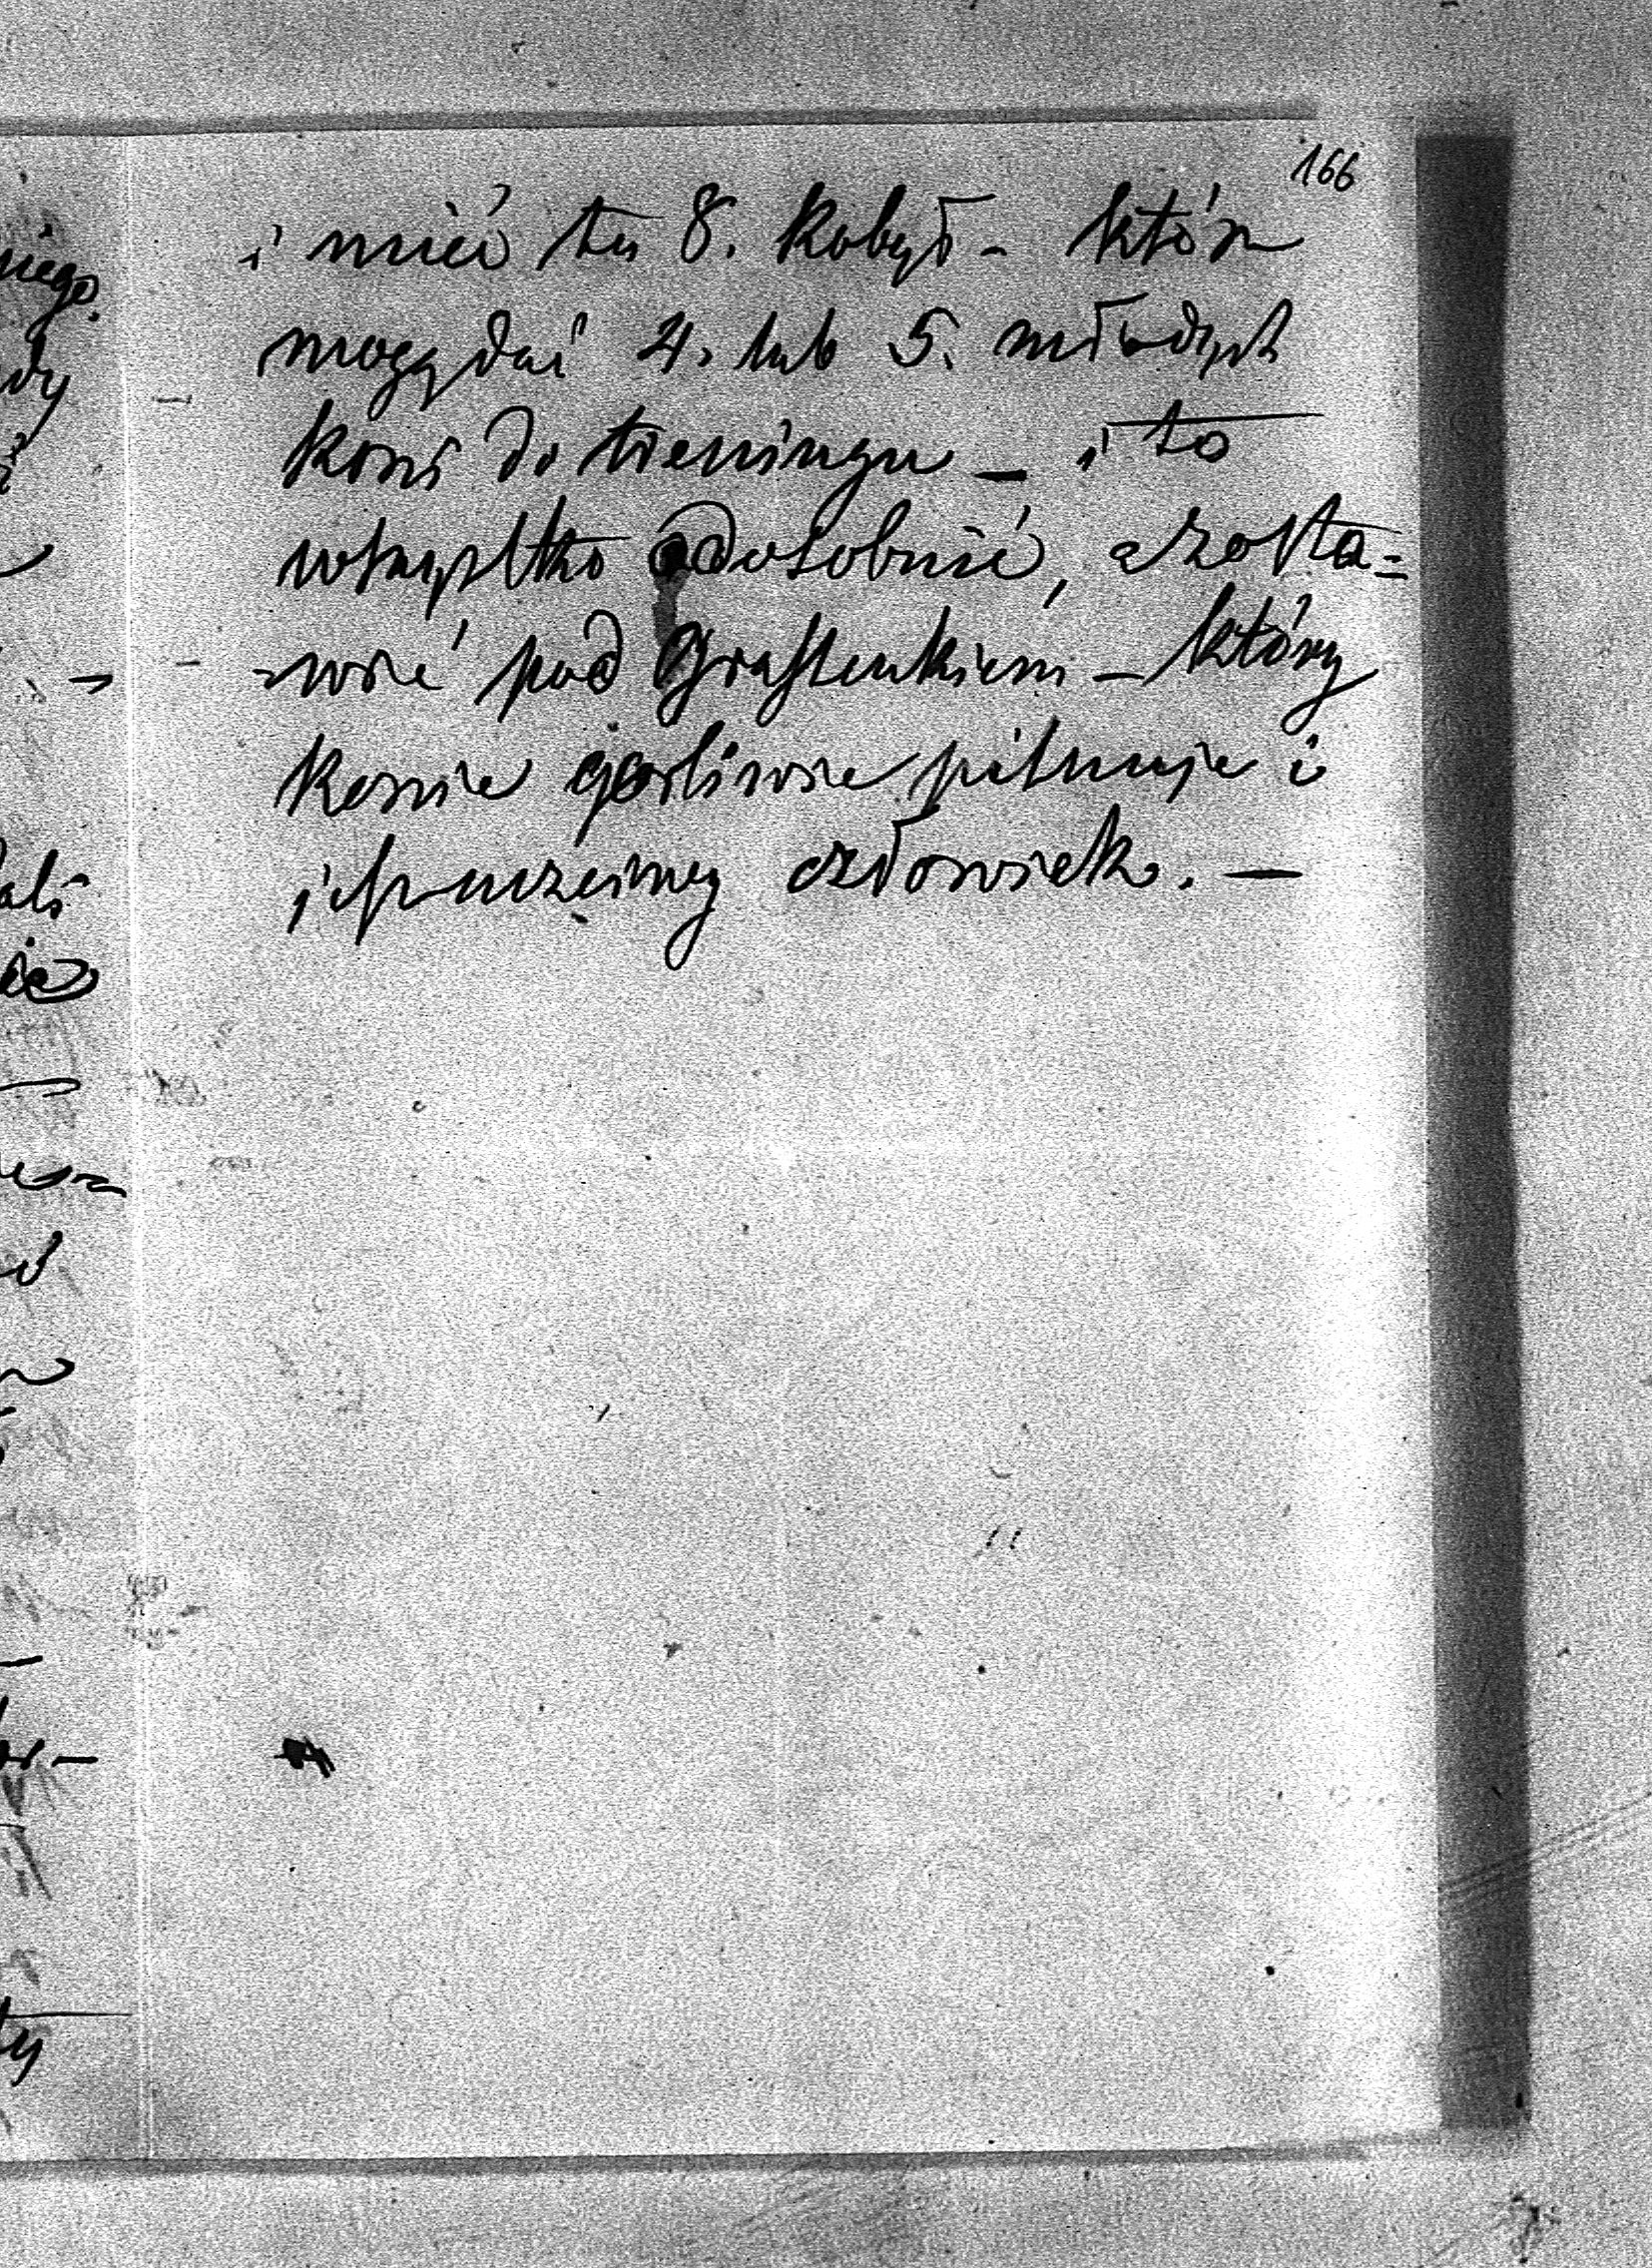 166
i mieć tu 8. kobył - które
mogą dać 4. lub 5. młodych
koni do treningu - i to
wszystko odosobnić, a zosta=
=wić pod - który
konie gorliwie pilnuje i
jest uczciwy człowiek. -